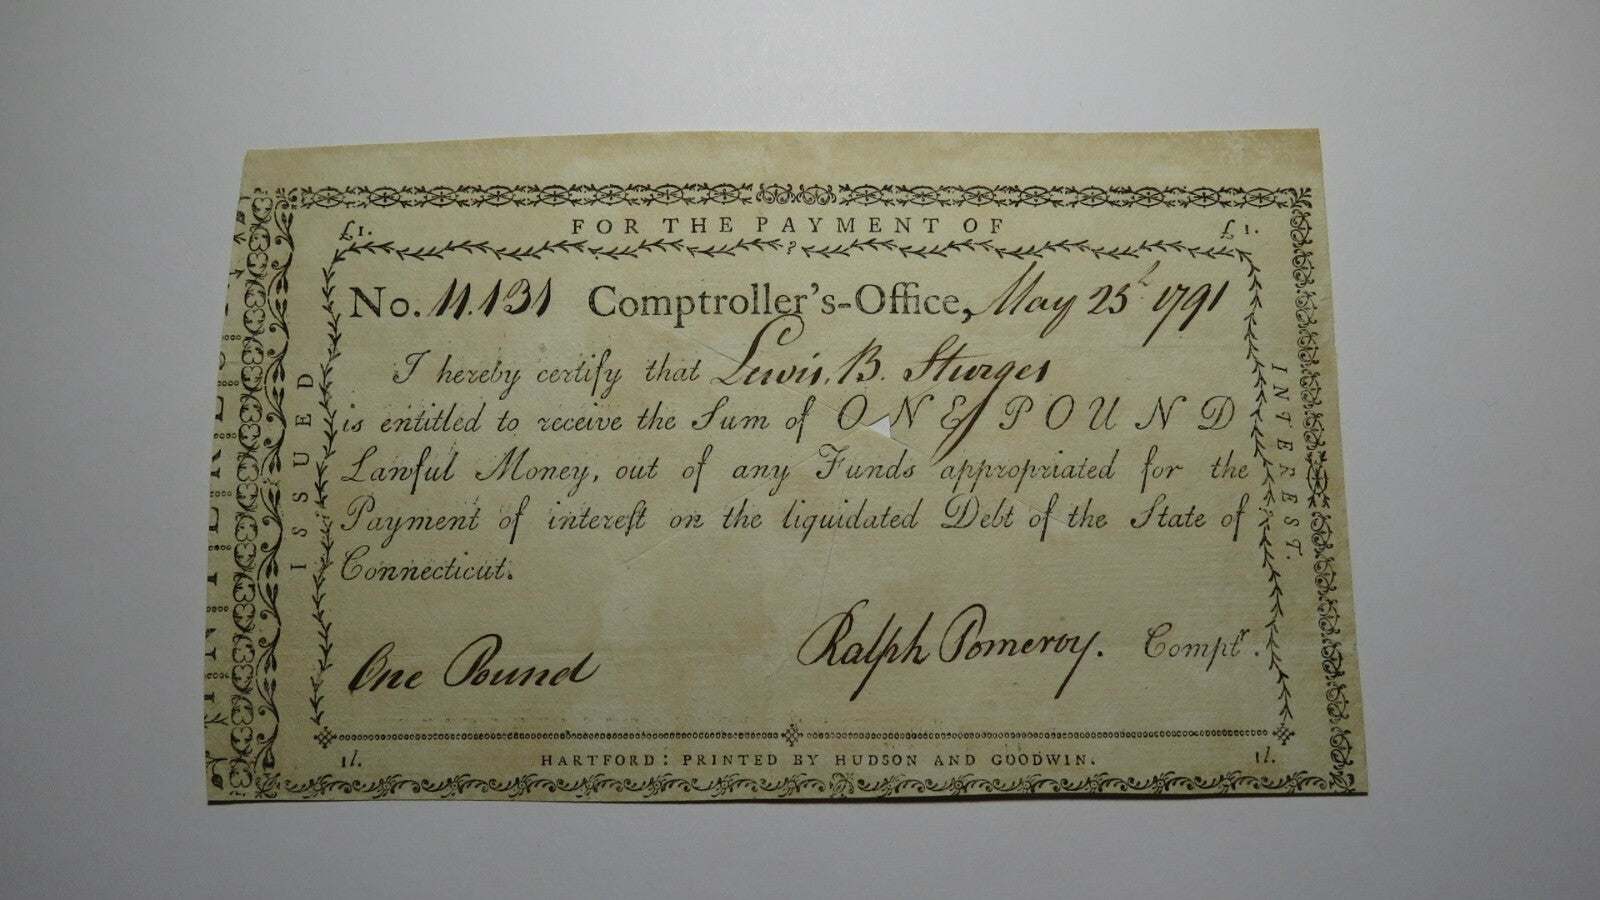 FOR THE PAYMENT OF
£1. £1.
ISSUED
INTEREST.
No. 11.131 Comptroller's-Office, May 25th 1791
I hereby certify that Lewis. B. Sturges
is entitled to receive the Sum of ONE POUND
Lawful Money, out of any Funds appropriated for the
Payment of interest on the liquidated Debt of the State of
Connecticut.
One Pound Ralph Pomeroy. Comptr.
1l. HARTFORD: PRINTED BY HUDSON AND GOODWIN. 1l.